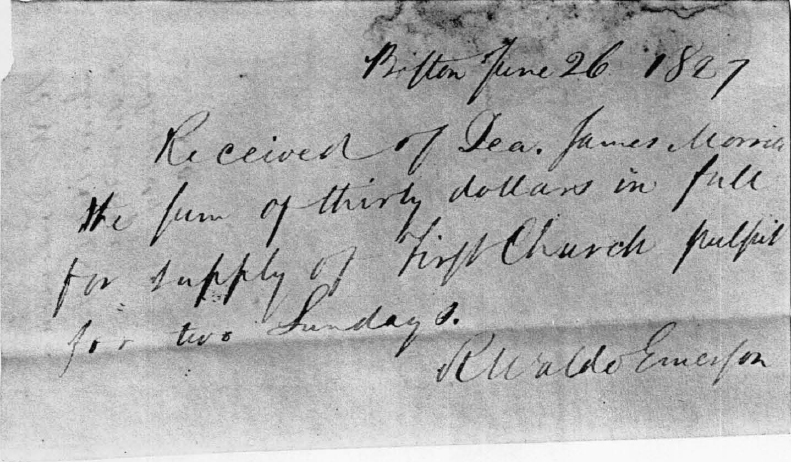 Boston June 26 1827
Received of Dea. James Morrill
the sum of thirty dollars in full
for supply of First Church pulpit
for two Sundays.
R Waldo Emerson